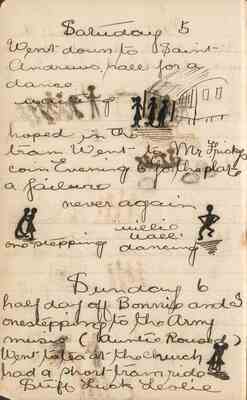 Saturday 5
Went down to Saint-
Andrews hall for a
dance
waiting
hoped in the
tram Went to Mr Fricks
coin Evening 6 for the plate
a failure
never again
millie
wall
one stepping dancing
Sunday 6
half day off Bonnie and I
onestepping to the Army
music (Auntie Roused)
Went to tea at the church
had a short tram ride
Stiff Luck Leslie